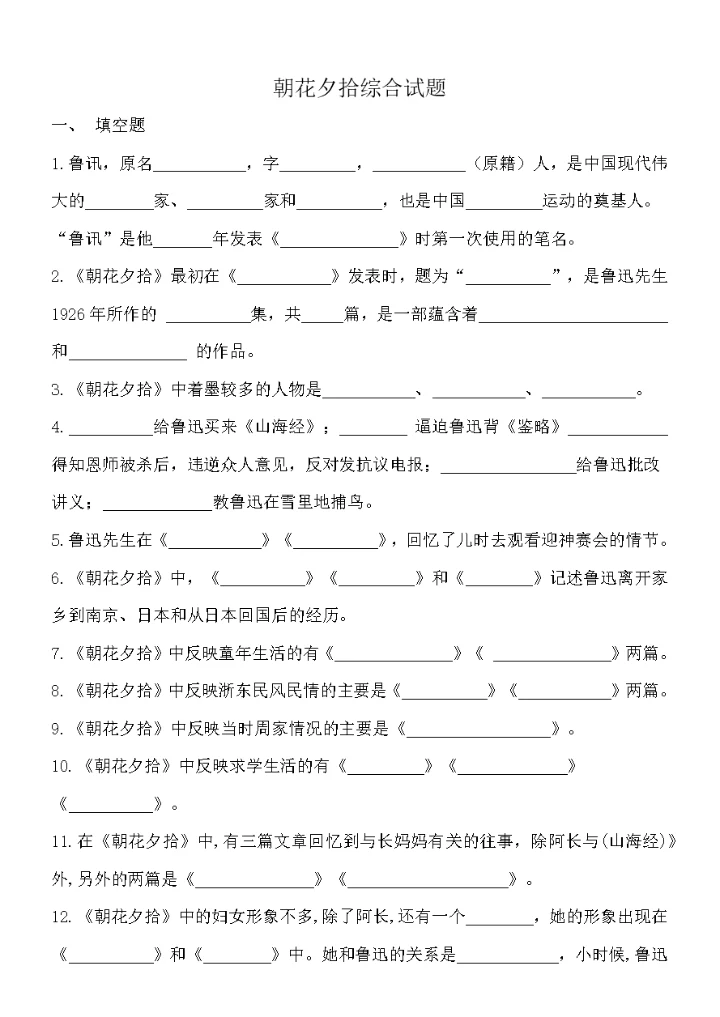 朝花夕拾综合试题
一、 填空题
1.鲁讯，原名___________，字_________，___________（原籍）人，是中国现代伟
大的________家、_________家和__________，也是中国_________运动的奠基人。
“鲁讯”是他_______年发表《______________》时第一次使用的笔名。
2.《朝花夕拾》最初在《___________》发表时，题为“__________”，是鲁迅先生
1926年所作的 __________集，共_____篇，是一部蕴含着______________________
和______________ 的作品。
3.《朝花夕拾》中着墨较多的人物是___________、___________、___________。
4.__________给鲁迅买来《山海经》；________ 逼迫鲁迅背《鉴略》____________
得知恩师被杀后，违逆众人意见，反对发抗议电报；________________给鲁迅批改
讲义；_____________教鲁迅在雪里地捕鸟。
5.鲁迅先生在《___________》《__________》，回忆了儿时去观看迎神赛会的情节。
6.《朝花夕拾》中，《__________》《_________》和《________》记述鲁迅离开家
乡到南京、日本和从日本回国后的经历。
7.《朝花夕拾》中反映童年生活的有《______________》《 ______________》两篇。
8.《朝花夕拾》中反映浙东民风民情的主要是《__________》《___________》两篇。
9.《朝花夕拾》中反映当时周家情况的主要是《_________________》。
10.《朝花夕拾》中反映求学生活的有《_________》《_____________》
《__________》。
11.在《朝花夕拾》中,有三篇文章回忆到与长妈妈有关的往事，除阿长与(山海经)》
外,另外的两篇是《______________》《___________________》。
12.《朝花夕拾》中的妇女形象不多,除了阿长,还有一个________，她的形象出现在
《__________》和《________》中。她和鲁迅的关系是____________，小时候,鲁迅